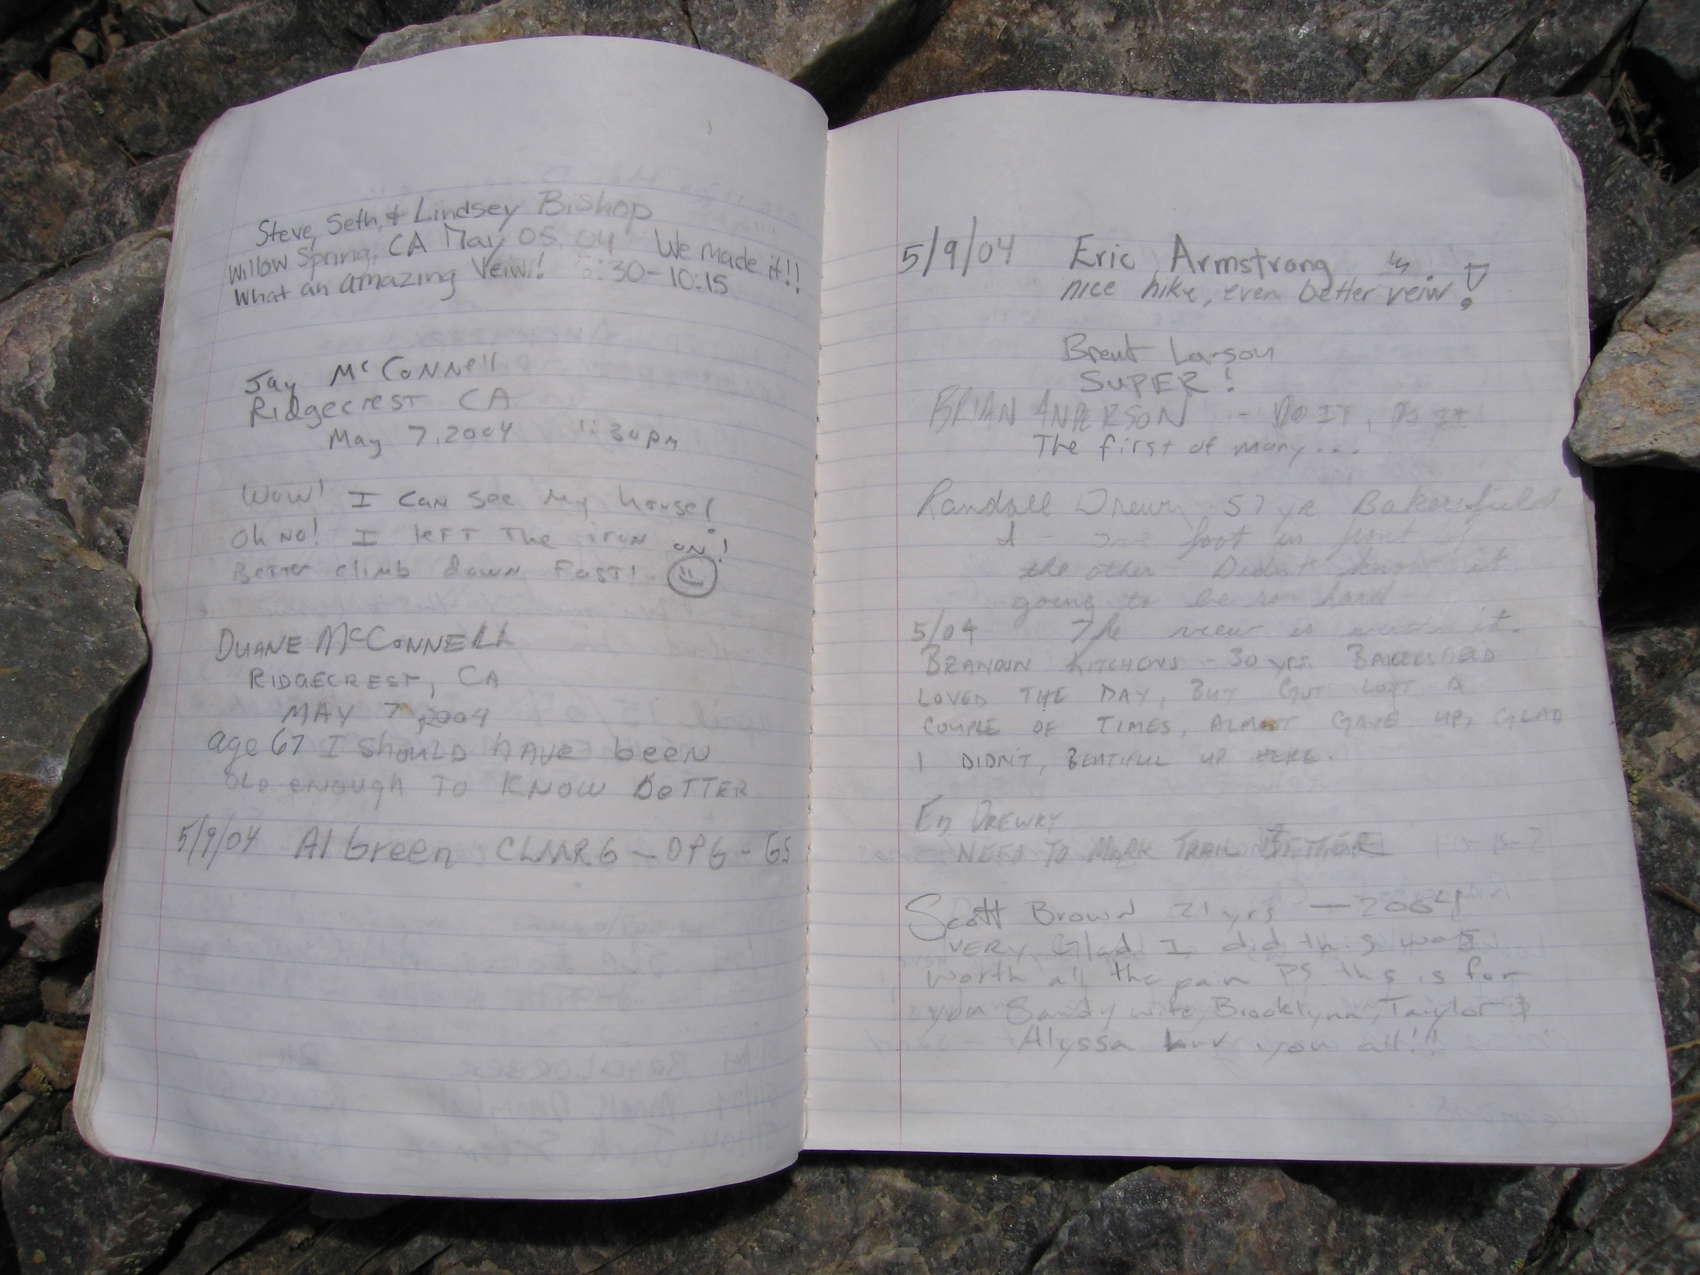 Steve, Seth, & Lindsey Bishop
Willow Spring, CA May 05, 04 We made it!!
What an amazing Veiw! :30-10:15
Jay McConnell
Ridgecrest CA
May 7, 2004 1:30 pm
Wow! I can see my house!
Oh no! I left the iron on!
Better climb down fast!
Duane McConnell
Ridgecrest, CA
May 7, 2004
age 67 I should have been
old enough to know better
5/9/04 Al Green CLMRG - DPG - GS
5/9/04 Eric Armstrong
nice hike, even better veiw!
Brent Larson
SUPER!
BRIAN ANDERSON - DO IT, DO IT
The first of many...
Randall Drewry 57 yr Bakersfield
one foot in front of
the other Didn't know it
going to be so hard
5/04 The view is worth it.
BRANDON KITCHENS - 30 yrs. BAKERSFIELD
LOVED THE DAY, BUT GOT LOST A
COUPLE OF TIMES, ALMOST GAVE UP, GLAD
I DIDN'T, BEATIFUL UP HERE.
ED DREWRY
NEED TO MARK TRAIL BETTER
Scott Brown 21 yrs - 2004
VERY Glad I did this was
worth all the pain PS this is for
you Sandy wife, Brooklynn, Taylor &
Alyssa luv you all!!